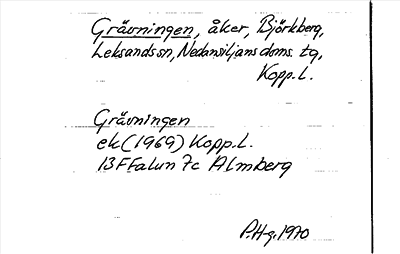 Grävningen, åker, Björkberg,
Leksands sn, Nedansiljans doms. tg,
Kopp. L.
Grävningen
ek (1969) Kopp. L.
13F Falun 7c Almberg
P.Hg. 1970